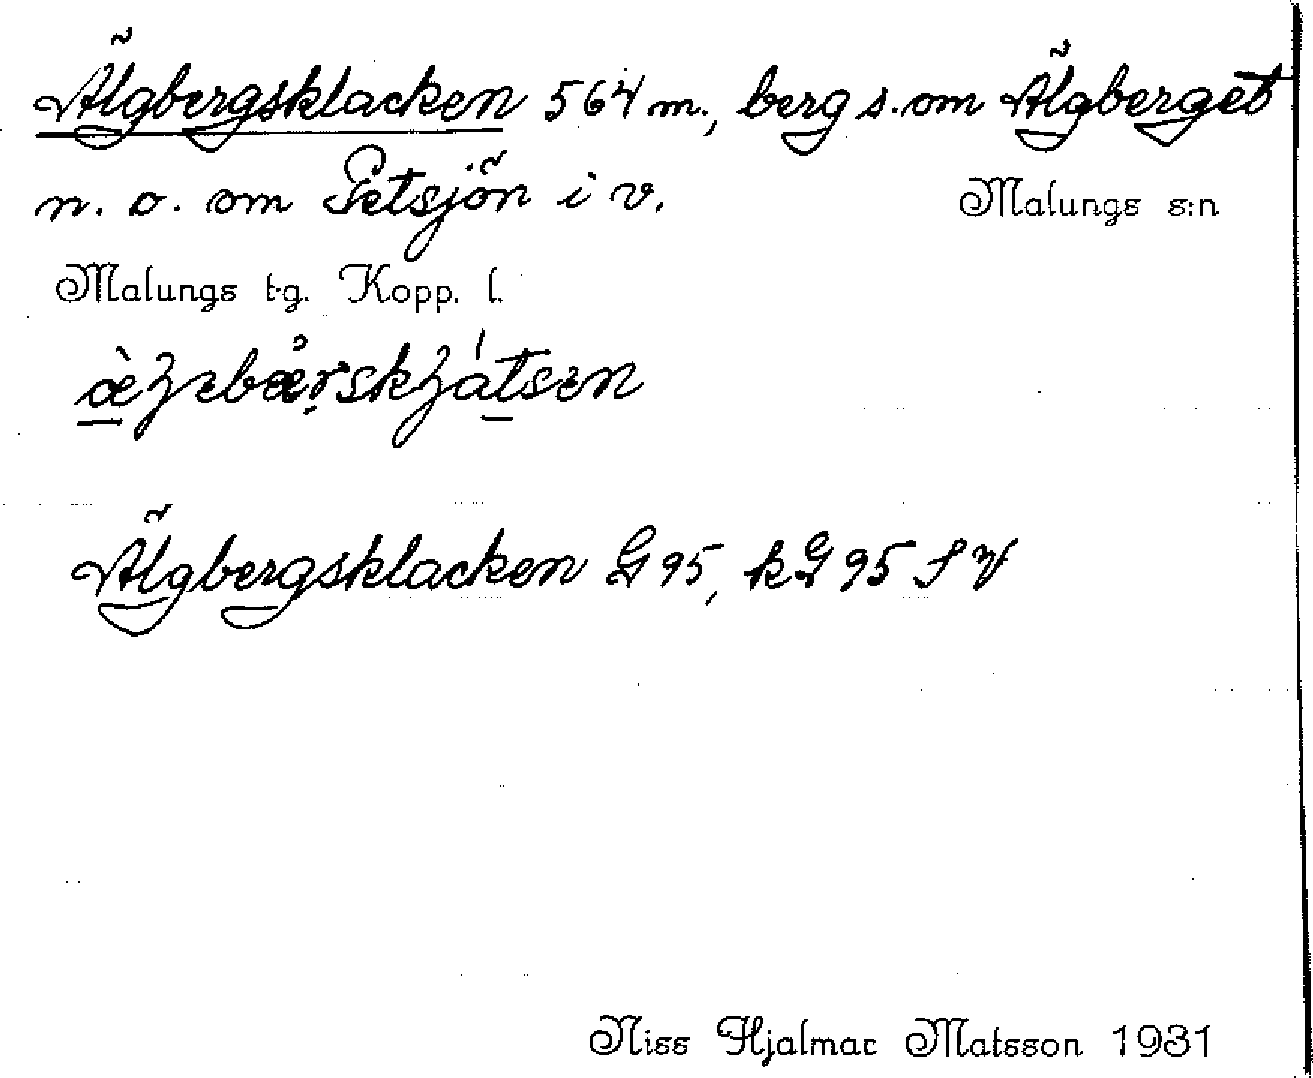 Älgbergsklacken 564 m., berg s. om Älgberget
n. o. om Letsjön i v.
Malungs s:n
Malungs t.g. Kopp. l.
Älgbergsklacken G 95, k G 95 S V
Niss Hjalmar Matsson 1931